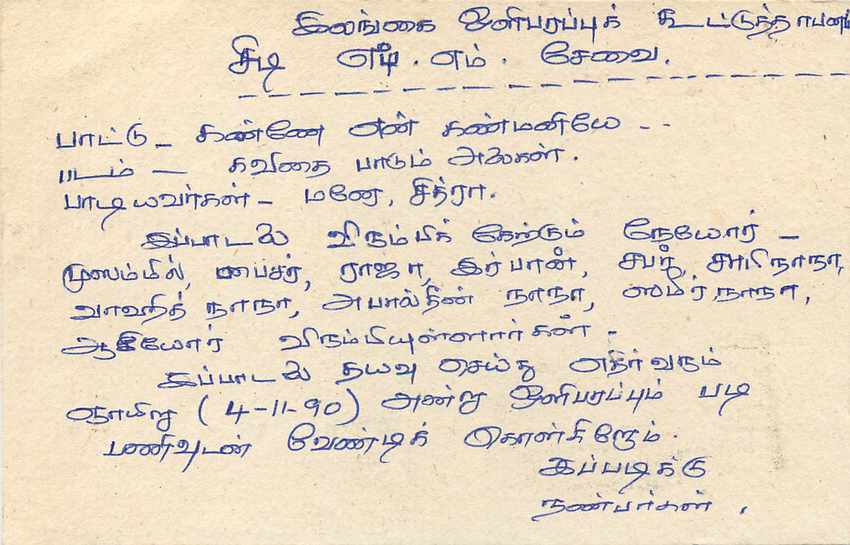 இலங்கை ஒளிபரப்புக் கூட்டுத்தாபனம்
சிடி எப். எம். சேவை.
பாட்டு - கண்ணே என் கண்மனியே --
படம் - கவிதை பாடும் அலைகள்.
பாடியவர்கள் - மனோ, சித்ரா.
இப்பாடலை விரும்பிக் கேற்டும் நேயோர் -
முஸம்மில், பைசர், ராஜா, இர்பான், சபர், சாபிநாநா,
வாஹித் நாநா, அபால்தீன் நாநா, ஸமீர் நாநா,
ஆகியோர் விரும்பியுள்ளார்கள் -
இப்பாடலை தயவு செய்து எதிர்வரும்
ஞாயிறு (4-11-90) அன்று ஒளிபரப்பும் படி
பணிவுடன் வேண்டிக் கொள்கிறோம்.
இப்படிக்கு
நண்பர்கள்.